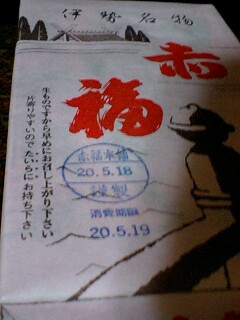 伊勢名物
赤福
生ものですから早めにお召し上がり下さい
片寄りやすいのでたいらにお持ち下さい
赤福本舗
20.5.18
謹製
消費期限
20.5.19